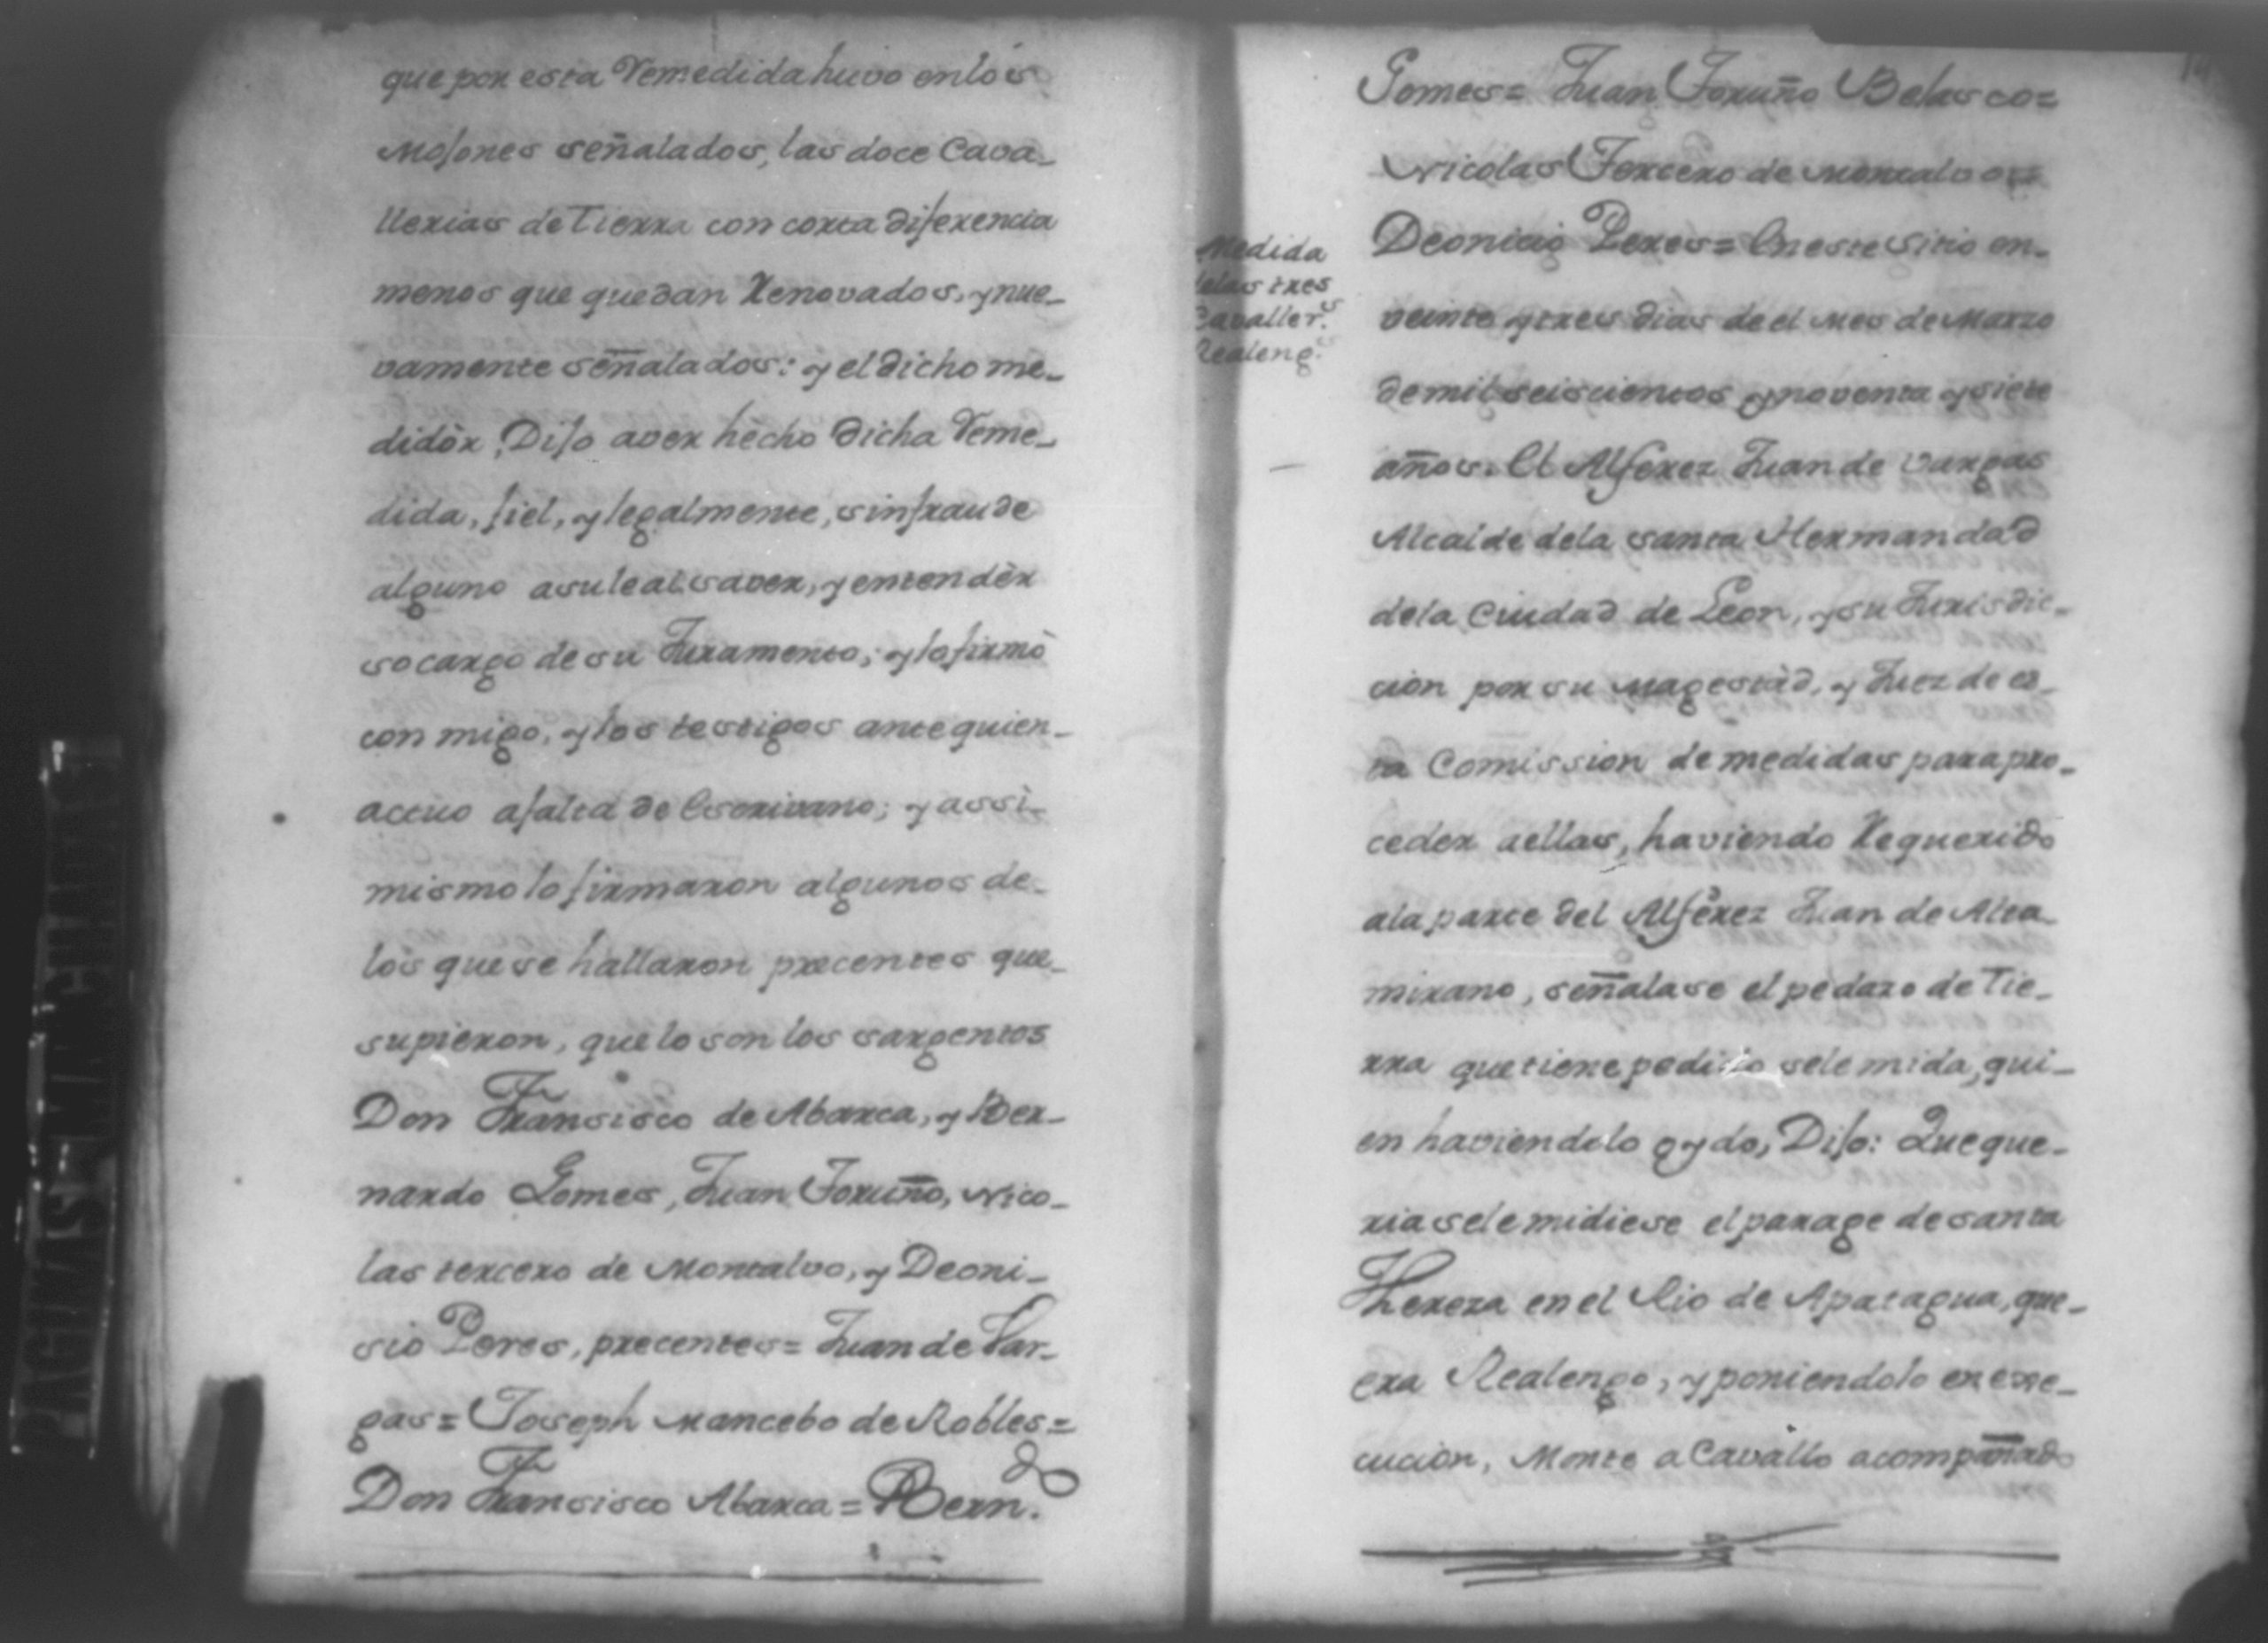 que por esta Remedida huvo en los
Mojones señalados, las doce Cava-
llerias de Tierra con corta diferencia
menos que quedan Renovados, y nue-
vamente señalados: y el dicho me-
didòr, Dijo aver hecho dicha Reme-
dida, fiel, y legalmente, sin fraude
alguno a su leal saver, y entendèr
so cargo de su Juramento; y lo firmò
con migo, y los testigos ante quien-
actuo a falta de Escrivano; y assi-
mismo lo firmaron algunos de-
los que se hallaron precentes que-
supieron, que lo son los sargentos
Don Fransisco de Abarca, y Ber-
nardo Gomes, Juan Foruño, Nico-
las tercero de Montalvo, y Deoni-
sio Peres, precentes= Juan de Var-
gas= Joseph Mancebo de Robles=
Don Fransisco Abarca= Bern.do
Medida
delas tres
Cavaller.s
Realeng.s
Gomes= Juan Foruño Belasco=
Nicolas Tercero de Montalvo=
Deonicio Peres= En este Sitio en-
veinte y tres dias de el Mes de Marzo
de mil seiscientos y noventa y siete
años. El Alferez Juan de Vargas
Alcalde dela santa Hermandad
dela Ciudad de Leon, y su Jurisdic-
cion por su Magestàd, y Juez de es-
ta Comission de medidas para pro-
ceder a ellas, haviendo Requerido
ala parte del Alférez Juan de Alta-
mirano, señalase el pedazo de Tie-
rra que tiene pedido sele mida, qui-
en haviendolo oydo, Dijo: Que que-
ria sele midiese el parage de santa
Thereza en el Rio de Apatagua, que-
era Realengo, y poniendolo en exe-
cucion, Monte a Cavallo acompañado